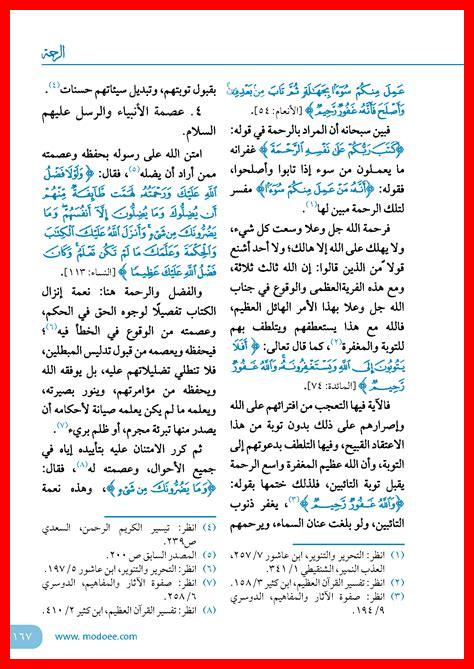 الرحمة
عَمِلَ مِنكُمْ سُوٓءًۢا بِجَهَٰلَةٍ ثُمَّ تَابَ مِنۢ بَعْدِهِۦ
وَأَصْلَحَ فَأَنَّهُۥ غَفُورٌ رَّحِيمٌ ﴾ [الأنعام: ٥٤].
فبين سبحانه أن المراد بالرحمة في قوله:
﴿كَتَبَ رَبُّكُمْ عَلَىٰ نَفْسِهِ ٱلرَّحْمَةَ﴾ غفرانه
ما يعملون من سوء إذا تابوا وأصلحوا،
فقوله: ﴿أَنَّهُۥ مَنْ عَمِلَ مِنكُمْ سُوٓءًۢا﴾ مفسر
لتلك الرحمة مبين لها(١).
فرحمة الله جل وعلا وسعت كل شيء،
ولا يهلك على الله إلا هالك؛ ولا أحد أشنع
قولا ممن الذين قالوا: إن الله ثالث ثلاثة،
ومع هذه الفرية العظمى والوقوع في جناب
الله جل وعلا بهذا الأمر الهائل العظيم،
فالله مع هذا يستعطفهم ويتلطف بهم
للتوبة والمغفرة(٢)، كما قال تعالى: ﴿ أَفَلَا
يَتُوبُونَ إِلَى ٱللَّهِ وَيَسْتَغْفِرُونَهُۥ وَٱللَّهُ غَفُورٌ
رَّحِيمٌ ﴾ [المائدة: ٧٤].
فالآية فيها التعجب من افترائهم على الله
وإصرارهم على ذلك بدون توبة من هذا
الاعتقاد القبيح، وفيها التلطف بدعوتهم إلى
التوبة، وأن الله عظيم المغفرة واسع الرحمة
يقبل توبة التائبين، فلذلك ختمها بقوله:
﴿وَٱللَّهُ غَفُورٌ رَّحِيمٌ﴾(٣)، يغفر ذنوب
التائبين، ولو بلغت عنان السماء، ويرحمهم
(١) انظر: التحرير والتنوير، ابن عاشور ٧/ ٢٥٧،
العذب النمير، الشنقيطي ١/ ٣٤١.
(٢) انظر: تفسير القرآن العظيم، ابن كثير ٣/ ١٥٨.
(٣) انظر: صفوة الآثار والمفاهيم، الدوسري
٩/ ١٩٤.
بقبول توبتهم، وتبديل سيئاتهم حسنات(٤).
٤. عصمة الأنبياء والرسل عليهم
السلام.
امتن الله على رسوله بحفظه وعصمته
ممن أراد أن يضله(٥)، فقال: ﴿وَلَوْلَا فَضْلُ
ٱللَّهِ عَلَيْكَ وَرَحْمَتُهُۥ لَهَمَّت طَّآئِفَةٌ مِّنْهُمْ
أَن يُضِلُّوكَ وَمَا يُضِلُّونَ إِلَّآ أَنفُسَهُمْ وَمَا
يَضُرُّونَكَ مِن شَىْءٍ وَأَنزَلَ ٱللَّهُ عَلَيْكَ ٱلْكِتَٰبَ
وَٱلْحِكْمَةَ وَعَلَّمَكَ مَا لَمْ تَكُن تَعْلَمُ وَكَانَ
فَضْلُ ٱللَّهِ عَلَيْكَ عَظِيمًا ﴾ [النساء: ١١٣].
والفضل والرحمة هنا: نعمة إنزال
الكتاب تفصيلًا لوجوه الحق في الحكم،
وعصمته من الوقوع في الخطأ فيه(٦)؛
فيحفظه ويعصمه من قبول تدليس المبطلين،
فلا تنطلي تضليلاتهم عليه، بل يوفقه الله
ويحفظه من مؤامرتهم، وينور بصيرته،
ويعلمه ما لم يكن يعلمه صيانة لأحكامه أن
يصدر منها تبرئة مجرم، أو ظلم بريء(٧).
ثم كرر الامتنان عليه بتأييده إياه في
جميع الأحوال، وعصمته له(٨)، فقال:
﴿وَمَا يَضُرُّونَكَ مِن شَىْءٍ﴾، وهذه نعمة
(٤) انظر: تيسير الكريم الرحمن، السعدي
ص٢٣٩.
(٥) المصدر السابق ص ٢٠٠.
(٦) انظر: التحرير والتنوير، ابن عاشور ٥/ ١٩٧.
(٧) انظر: صفوة الآثار والمفاهيم، الدوسري
٦/ ٢٥٨.
(٨) انظر: تفسير القرآن العظيم، ابن كثير ٢/ ٤١٠.
www. modoee.com
١٦٧